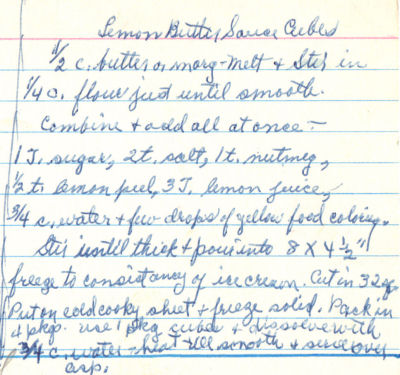 Lemon Butter Sauce Cubes
1/2 c. butter or marg-melt & Stir in
1/4 c. flour just until smooth.
Combine & add all at once -
1 T. sugar, 2t. salt, 1t. nutmeg,
1/2 t. lemon peel, 3 T. lemon juice,
3/4 c. water & few drops of yellow food coloring.
Stir until thick & pour into 8 X 4 1/2"
freeze to consistancy of ice cream. Cut in 32
Put on cold cooky sheet & freeze solid. Pack in
4 pkgs. use 1 pkg cubes & dissolve with
3/4 c. water - heat till smooth & serve over
asp.